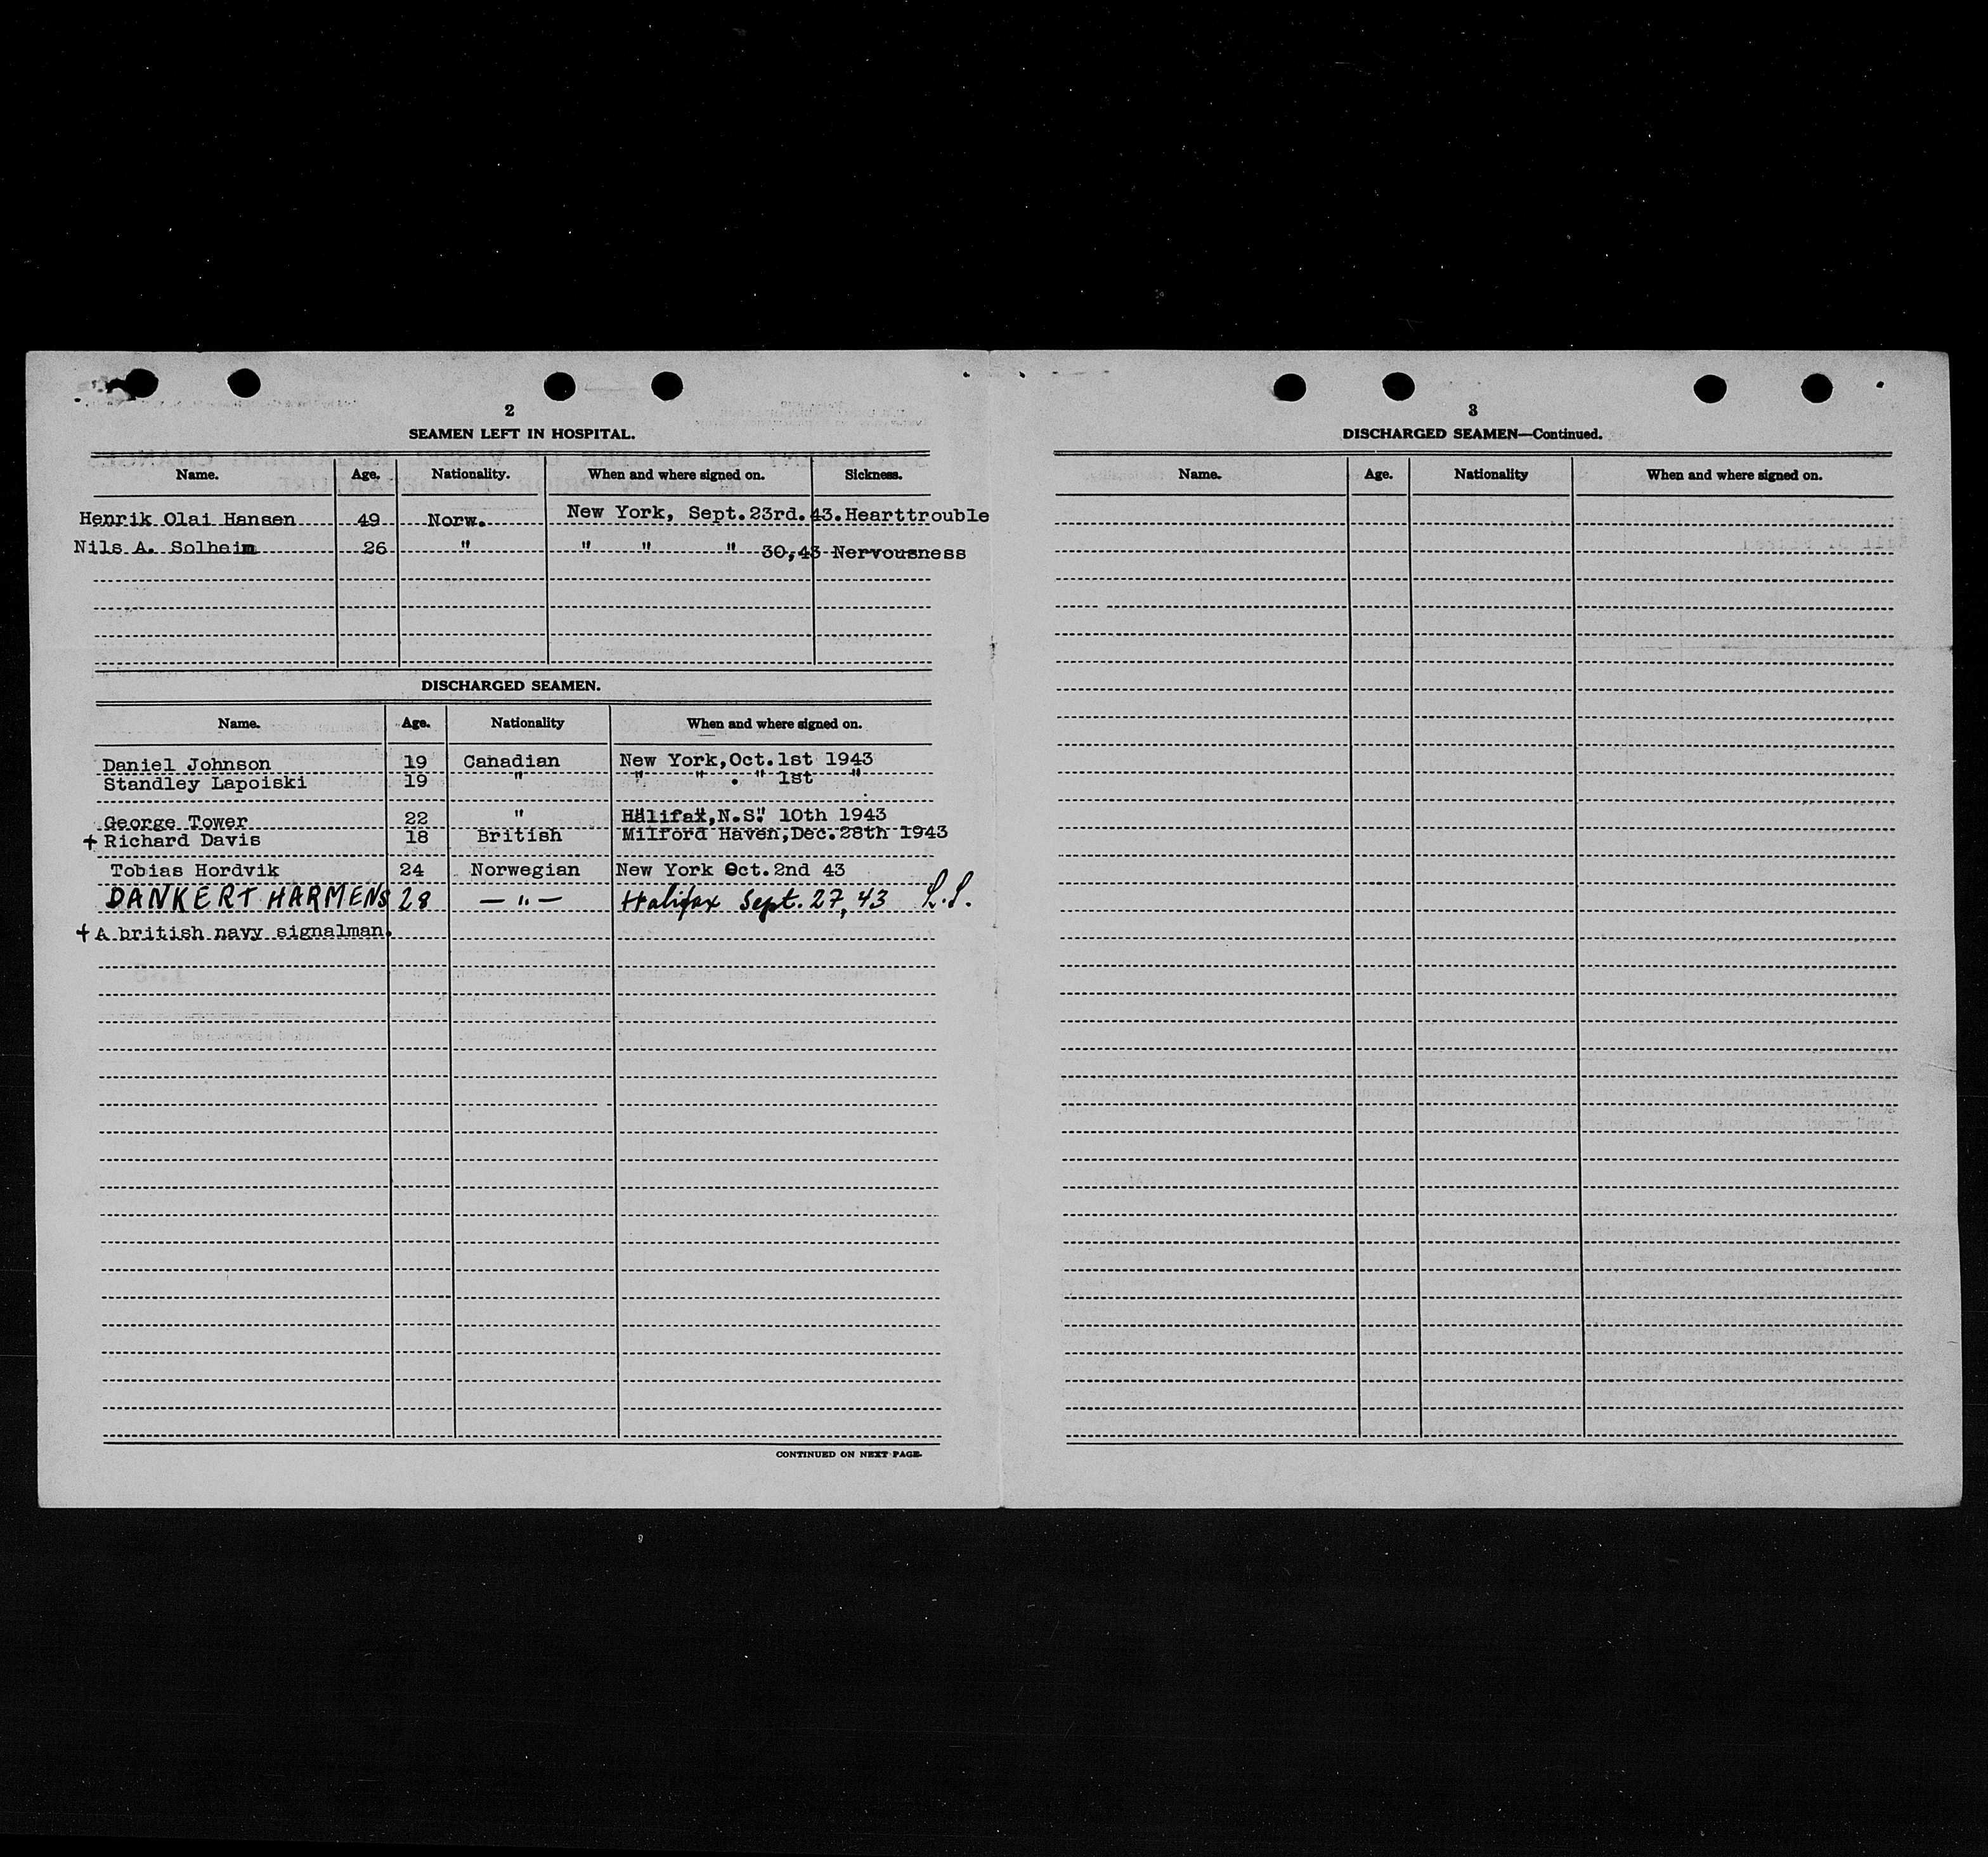 2
SEAMEN LEFT IN HOSPITAL.
Name. Age. Nationality. When and where signed on. Sickness.
Henrik Olai Hansen 49 Norw. New York, Sept.23rd.43. Hearttrouble
Nils A. Solheim 26 " " " " 30,43 Nervousness
DISCHARGED SEAMEN.
Name. Age. Nationality When and where signed on.
Daniel Johnson 19 Canadian New York,Oct.1st 1943
Standley Lapoiski 19 " " " . " 1st "
George Tower 22 " Halifax,N.S. " 10th 1943
+ Richard Davis 18 British Milford Haven,Dec.28th 1943
Tobias Hordvik 24 Norwegian New York Oct.2nd 43
DANKERT HARMENS 28 — " — Halifax Sept. 27, 43 L.S.
+ A british navy signalman.
CONTINUED ON NEXT PAGE.
3
DISCHARGED SEAMEN—Continued.
Name. Age. Nationality When and where signed on.